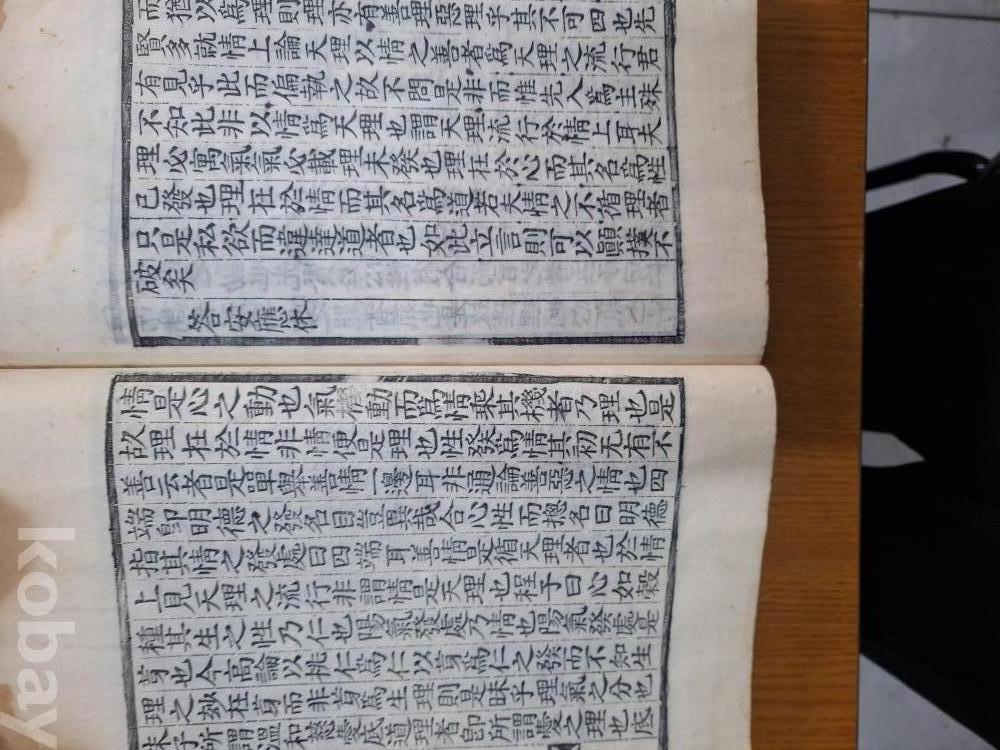 而猶以爲理則理亦有善理惡理乎其不可四也先
賢多就情上論天理以情之善者爲天理之流行君
有見乎此而偏執之故不問是非而惟先入爲主殊
不知此非以情爲天理也謂天理流行於情上耳夫
理必寓氣氣必載理未發也理在於心而其名爲性
已發也理在於情而其名爲道若夫情之不循理者
只是私欲而違達道者也如此立言則可以顚撲不
破矣
答安應休
情是心之動也氣機動而爲情乘其機者乃理也是
故理在於情非情便是理也性發爲情其初无有不
善云者是單擧善情一邊耳非通論善惡之情也四
端卽明德之發名目豈異哉合心性而摠名曰明德
指其情之發處曰四端耳善情是循天理者也於情
上見天理之流行非謂情是天理也程子曰心如穀
種其生之性乃仁也陽氣發處乃情也陽氣發處是
芽也今高論以桃仁爲仁以芽爲仁之發而不知生
理之妙在芽而非芽爲生理則是昧乎理氣之分也
朱子所謂溫和慈愛底道理者卽所謂愛之理也底
kobay